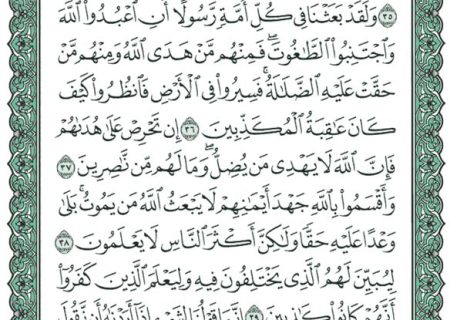 ﴿٣٥﴾ وَلَقَدْ بَعَثْنَا فِي كُلِّ أُمَّةٍ رَّسُولًا أَنِ ٱعْبُدُوا۟ ٱللَّهَ
وَٱجْتَنِبُوا۟ ٱلطَّٰغُوتَ ۖ فَمِنْهُم مَّنْ هَدَى ٱللَّهُ وَمِنْهُم مَّنْ
حَقَّتْ عَلَيْهِ ٱلضَّلَٰلَةُ ۚ فَسِيرُوا۟ فِي ٱلْأَرْضِ فَٱنظُرُوا۟ كَيْفَ
كَانَ عَٰقِبَةُ ٱلْمُكَذِّبِينَ ﴿٣٦﴾ إِن تَحْرِصْ عَلَىٰ هُدَىٰهُمْ
فَإِنَّ ٱللَّهَ لَا يَهْدِي مَن يُضِلُّ ۖ وَمَا لَهُم مِّن نَّٰصِرِينَ ﴿٣٧﴾
وَأَقْسَمُوا۟ بِٱللَّهِ جَهْدَ أَيْمَٰنِهِمْ ۙ لَا يَبْعَثُ ٱللَّهُ مَن يَمُوتُ ۚ بَلَىٰ
وَعْدًا عَلَيْهِ حَقًّا وَلَٰكِنَّ أَكْثَرَ ٱلنَّاسِ لَا يَعْلَمُونَ ﴿٣٨﴾
لِيُبَيِّنَ لَهُمُ ٱلَّذِي يَخْتَلِفُونَ فِيهِ وَلِيَعْلَمَ ٱلَّذِينَ كَفَرُوٓا۟
أَنَّهُمْ كَانُوا۟ كَٰذِبِينَ ﴿٣٩﴾ إِنَّمَا قَوْلُنَا لِشَيْءٍ إِذَآ أَرَدْنَٰهُ أَن نَّقُولَ